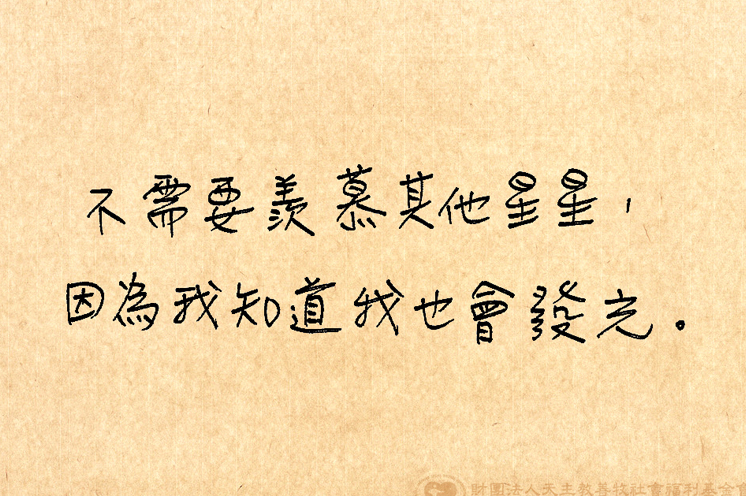 不需要羨慕其他星星，
因為我知道我也會發光。
財團法人天主教善牧社會福利基金會